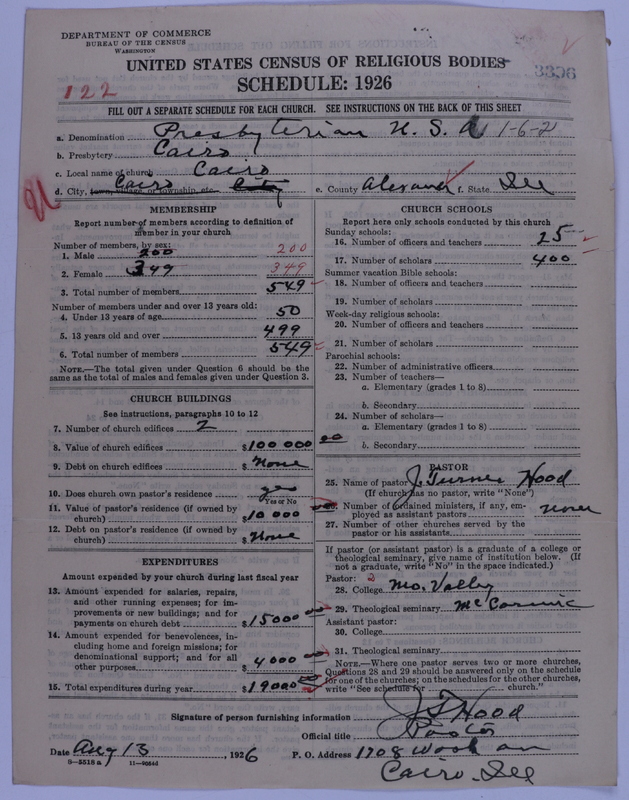 DEPARTMENT OF COMMERCE
BUREAU OF THE CENSUS
WASHINGTON
UNITED STATES CENSUS OF RELIGIOUS BODIES
SCHEDULE: 1926
3396
122
FILL OUT A SEPARATE SCHEDULE FOR EACH CHURCH. SEE INSTRUCTIONS ON THE BACK OF THIS SHEET
a. Denomination Presbyterian U. S. A 1-6-2
b. Presbytery Cairo
c. Local name of church Cairo
d. City, town, village, or township, etc. Cairo City e. County Alexand f. State Ill
MEMBERSHIP
Report number of members according to definition of member in your church
Number of members, by sex:
1. Male 200 200
2. Female 349 349
3. Total number of members 549
Number of members under and over 13 years old:
4. Under 13 years of age 50
5. 13 years old and over 499
6. Total number of members 549
NOTE.—The total given under Question 6 should be the same as the total of males and females given under Question 3.
CHURCH BUILDINGS
See instructions, paragraphs 10 to 12
7. Number of church edifices 2
8. Value of church edifices $100 000 00
9. Debt on church edifices $ None
10. Does church own pastor's residence yes
Yes or No
11. Value of pastor's residence (if owned by church) $10 000 00
12. Debt on pastor's residence (if owned by church) $ None
EXPENDITURES
Amount expended by your church during last fiscal year
13. Amount expended for salaries, repairs, and other running expenses; for improvements or new buildings; and for payments on church debt $15000 00
14. Amount expended for benevolences, including home and foreign missions; for denominational support; and for all other purposes $ 4000 00
15. Total expenditures during year $19000 00
CHURCH SCHOOLS
Report here only schools conducted by this church
Sunday schools:
16. Number of officers and teachers 25
17. Number of scholars 400
Summer vacation Bible schools:
18. Number of officers and teachers
19. Number of scholars
Week-day religious schools:
20. Number of officers and teachers
21. Number of scholars
Parochial schools:
22. Number of administrative officers
23. Number of teachers—
a. Elementary (grades 1 to 8)
b. Secondary
24. Number of scholars—
a. Elementary (grades 1 to 8)
b. Secondary
PASTOR
25. Name of pastor J. Turner Hood
(If church has no pastor, write "None")
26. Number of ordained ministers, if any, employed as assistant pastors None
27. Number of other churches served by the pastor or his assistants
If pastor (or assistant pastor) is a graduate of a college or theological seminary, give name of institution below. (If not a graduate, write "No" in the space indicated.)
Pastor: 2
28. College Mo. Valley
29. Theological seminary McCormic
Assistant pastor:
30. College
31. Theological seminary
NOTE.—Where one pastor serves two or more churches, Questions 28 and 29 should be answered only on the schedule for one of the churches; on the schedules for the other churches, write "See schedule for church."
Signature of person furnishing information J T Hood
Official title Pastor
Date Aug 13, 1926 P. O. Address 1708 Wash an
9-5518 a
Cairo, Ill